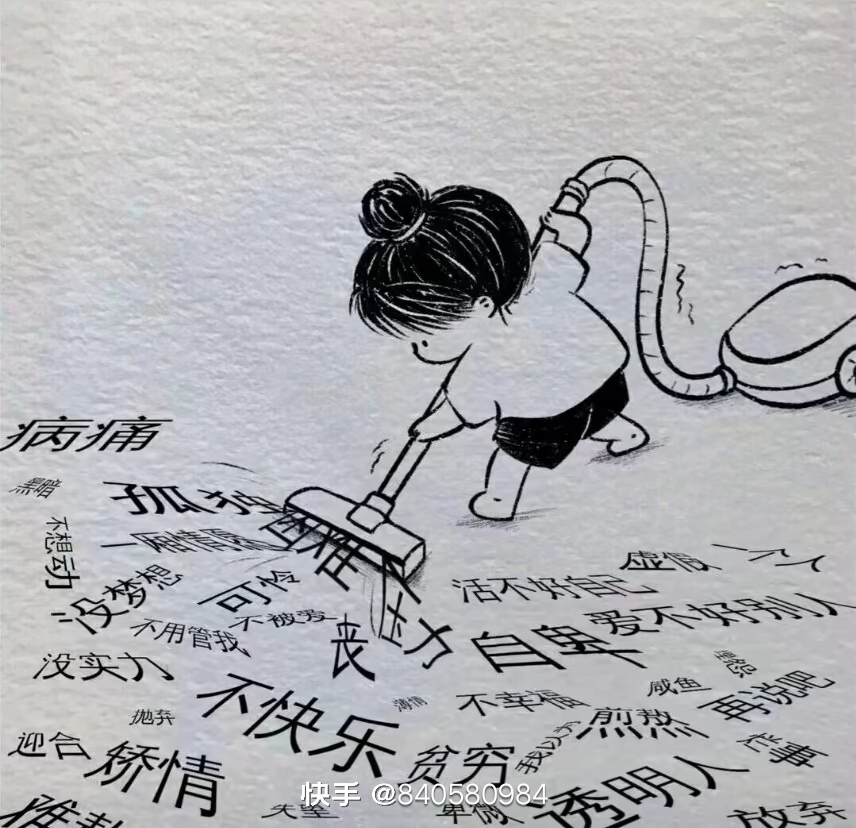 病痛
黑暗
孤独
一厢情愿
不想动
没梦想
可怜
不被爱
不用管我
丧
压力
虚假
一个人
活不好自己
爱不好别人
自卑
没实力
不快乐
薄情
不幸福
咸鱼
再说吧
抛弃
迎合
矫情
贫穷
我以为
煎熬
透明人
失望
卑微
放弃
快手 @840580984